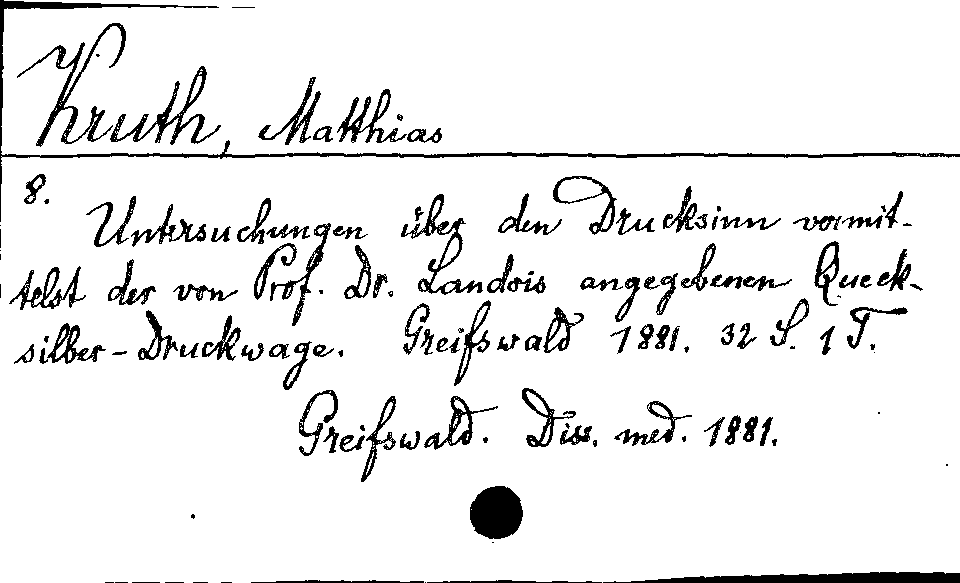 Kruth, Matthias
8.
Untersuchungen über den Drucksinn vormit-
telst der von Prof. Dr. Landois angegebenen Queck-
silber-Druckwage. Greifswald 1881. 32 S. 1 T.
Greifswald. Diss. med. 1881.